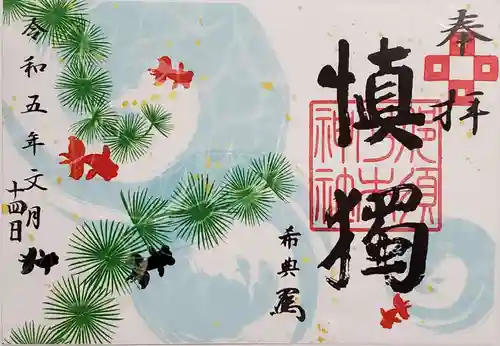 奉拝
慎獨
希典書
令和五年文月
十四日